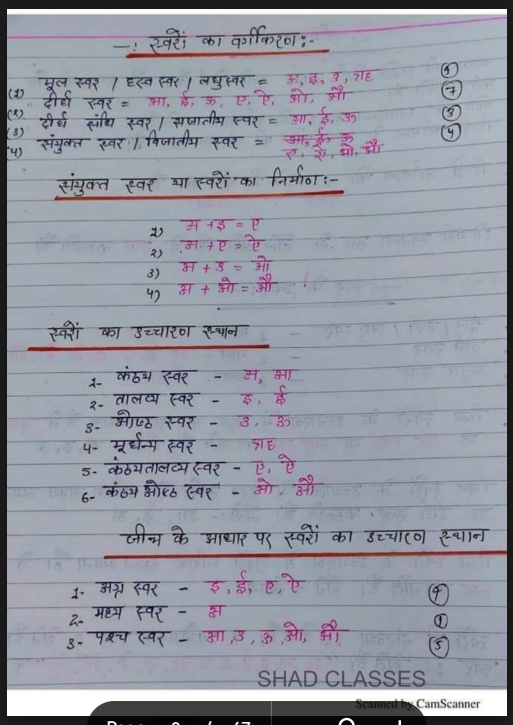 —: स्वरों का वर्गीकरण:-
(1) मूल स्वर / ह्रस्व स्वर / लघुस्वर = अ, इ, उ, ऋ (4)
(2) दीर्घ स्वर = आ, ई, ऊ, ए, ऐ, ओ, औ (7)
(3) दीर्घ संधि स्वर / सजातीय स्वर = आ, ई, ऊ (3)
(4) संयुक्त स्वर / विजातीय स्वर = ए, ऐ, ओ, औ (4)
संयुक्त स्वर या स्वरों का निर्माण:-
1) अ + इ = ए
2) अ + ए = ऐ
3) अ + उ = ओ
4) अ + ओ = औ
स्वरों का उच्चारण स्थान
1- कंठ्य स्वर - अ, आ
2- तालव्य स्वर - इ, ई
3- ओष्ठ स्वर - उ, ऊ
4- मूर्धन्य स्वर - ऋ
5- कंठ्यतालव्य स्वर - ए, ऐ
6- कंठ्य ओष्ठ स्वर - ओ, औ
जीभ के आधार पर स्वरों का उच्चारण स्थान
1- अग्र स्वर - इ, ई, ए, ऐ (4)
2- मध्य स्वर - अ (1)
3- पश्च स्वर - आ, उ, ऊ, ओ, औ (5)
SHAD CLASSES
Scanned by CamScanner